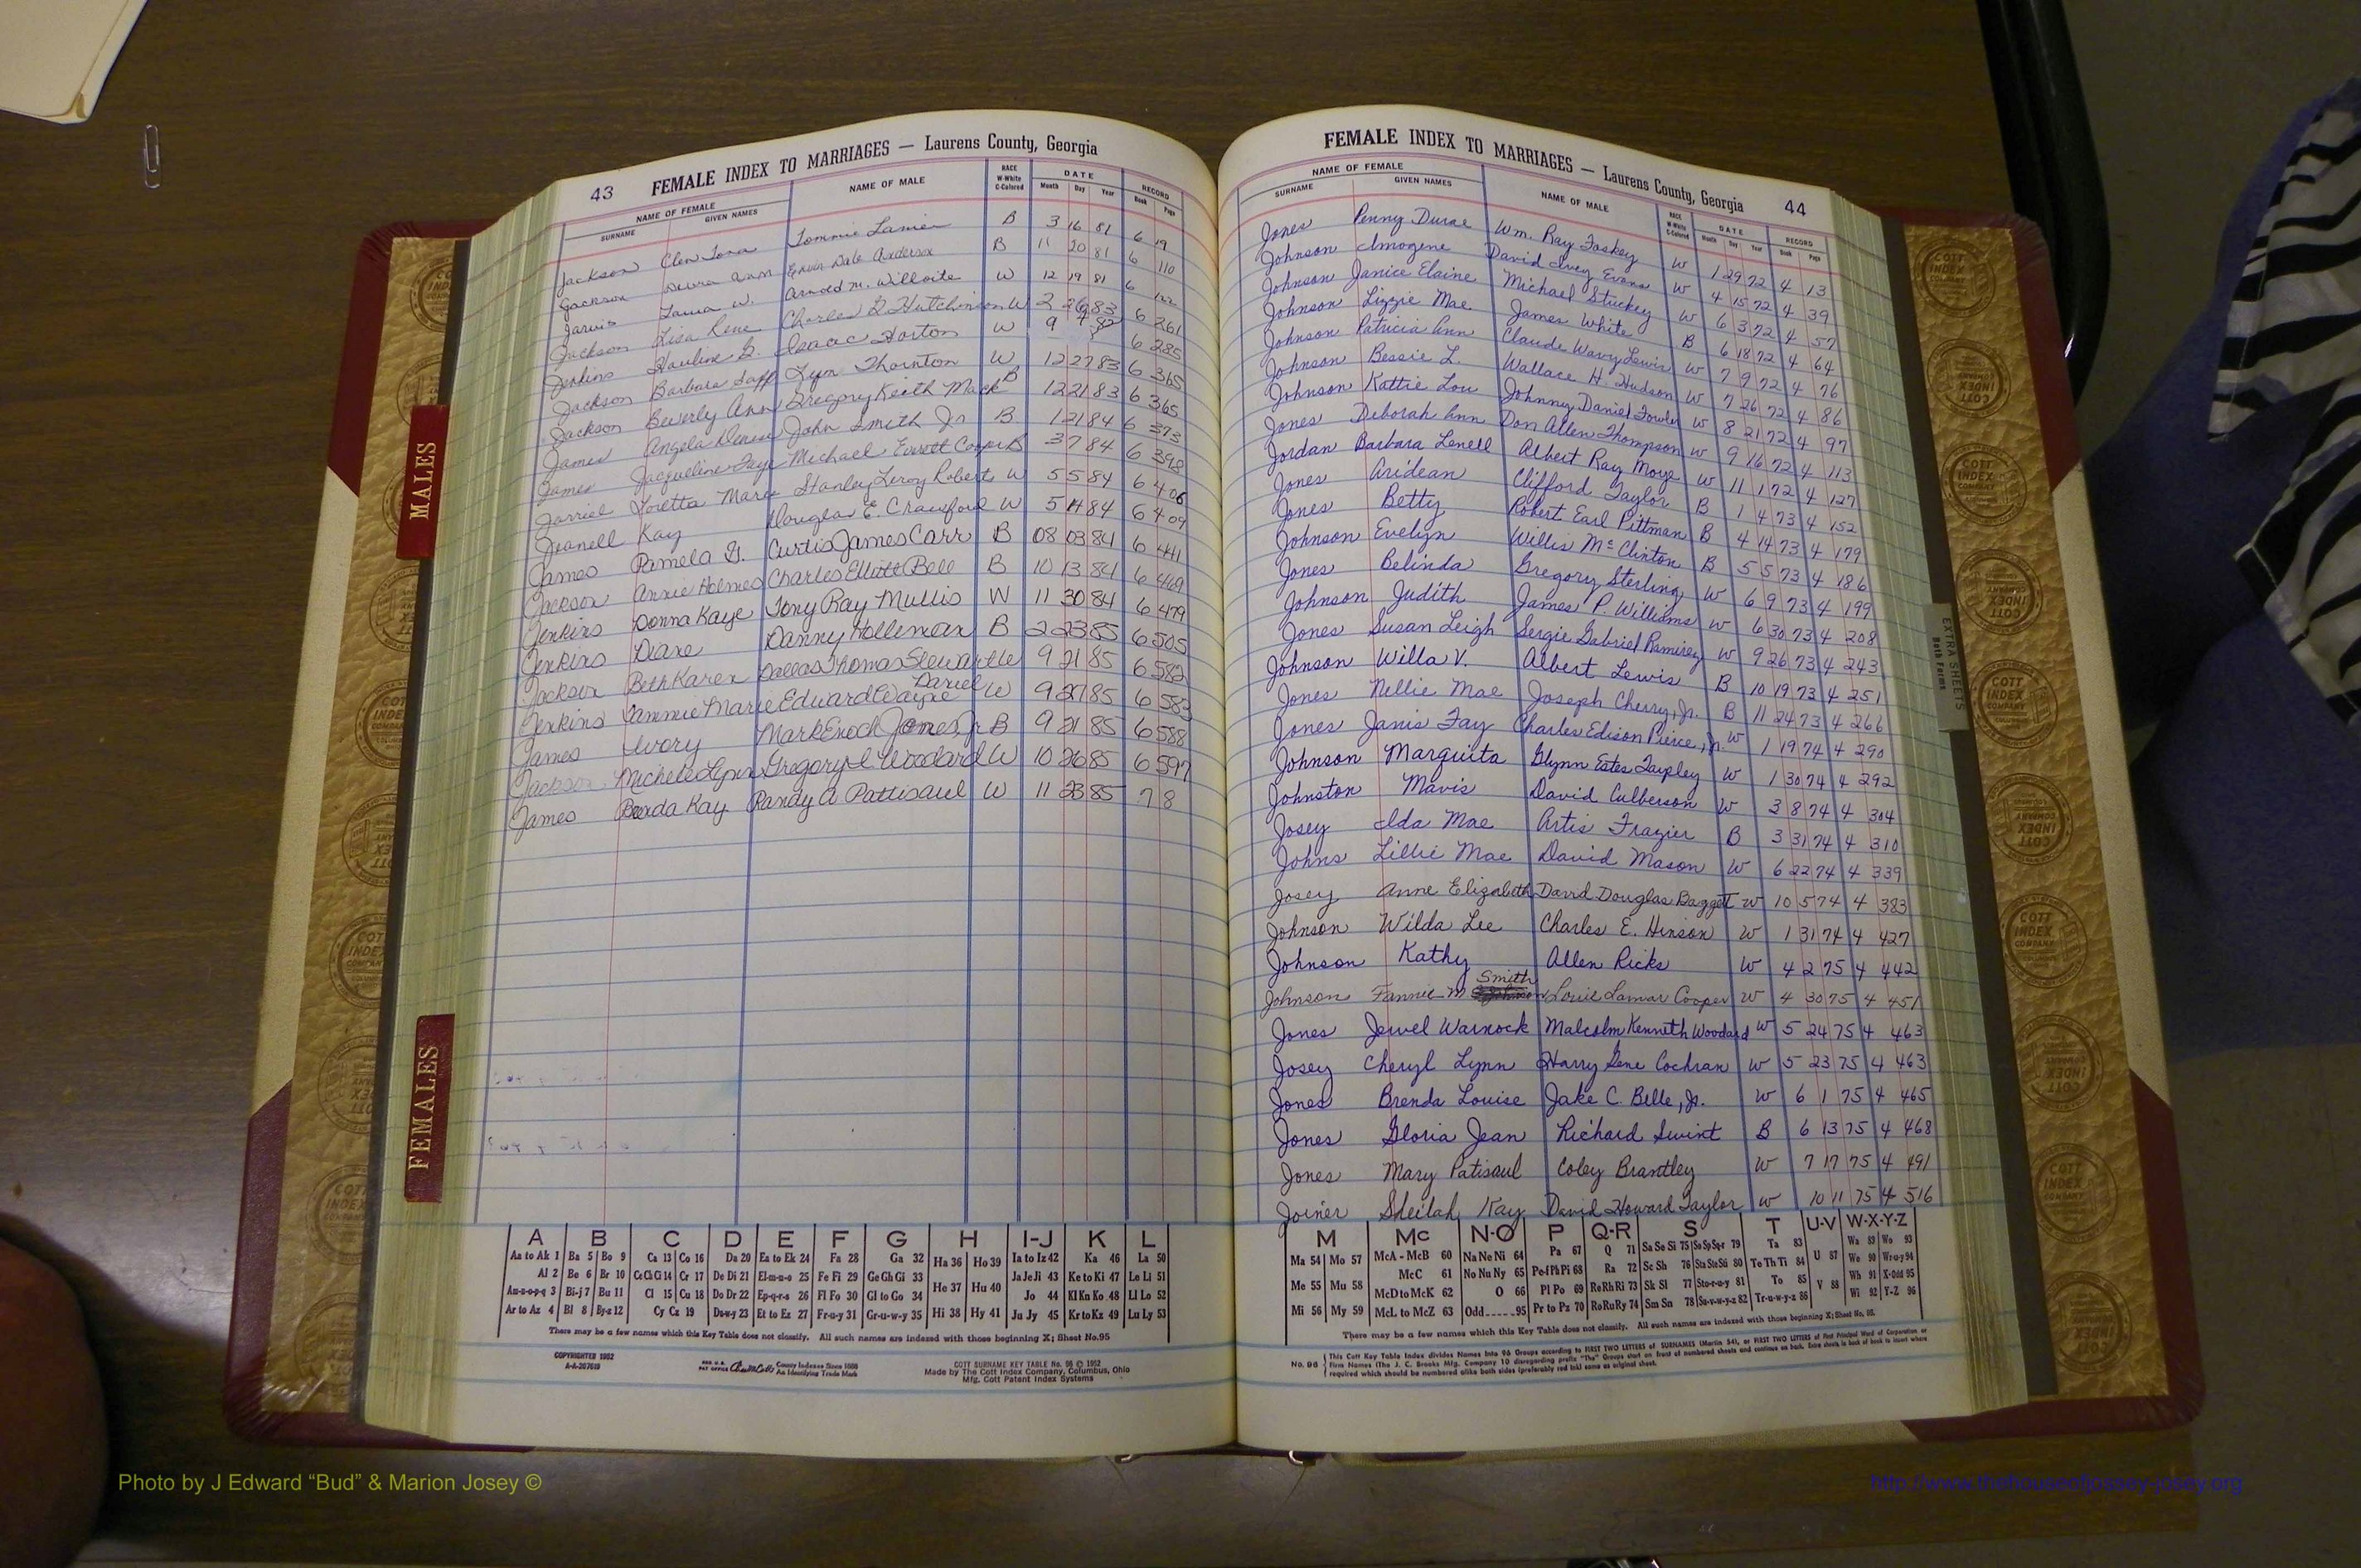 43 FEMALE INDEX TO MARRIAGES — Laurens County, Georgia
NAME OF FEMALE NAME OF MALE RACE W-White C-Colored DATE RECORD
SURNAME GIVEN NAMES Month Day Year Book Page
Jackson Tommie Lanier B 3 16 81 6 19
Jackson Ann Dale Anderson B 11 20 81 6 110
Jarvis W. Arnold M. Willoite W 12 19 81 6 122
Jackson Lisa Rene Charles Hutchinson W 2 26 83 6 261
Jenkins Pauline G. Isaac Horton W 9 6 285
Jackson Barbara Sapp Lynn Thornton W 12 27 83 6 365
Jackson Beverly Ann Gregory Keith Mack B 12 21 83 6 365
James Angela Denise John Smith Jr B 1 21 84 6 373
James Jacqueline Faye Michael Everett Cooper B 3 7 84 6 398
Jarriel Loretta Marie Stanley Leroy Roberts W 5 5 84 6 406
Jeanell Kay Douglas E. Crawford W 5 14 84 6 409
James Pamela G. Curtis James Carr B 08 03 84 6 441
Jackson Annie Holmes Charles Elliott Bell B 10 13 84 6 469
Jenkins Donna Kaye Tony Ray Mullis W 11 30 84 6 479
Jenkins Diane Danny Holleman B 2 23 85 6 505
Jackson Beth Karen Dallas Thomas Stewart W 9 21 85 6 582
Daniel
Jenkins Tammie Marie Edward Wayne W 9 27 85 6 583
James Ivory Mark Enoch Jones, Jr B 9 21 85 6 588
Jackson Michele Lynn Gregory L Woodard W 10 26 85 6 597
James Brenda Kay Randy A Pattisaul W 11 23 85 7 8
A B C D E F G H I-J K L
Aa to Ak 1 Ba 5 Bo 9 Ca 13 Co 16 Da 20 Ea to Ek 24 Fa 28 Ga 32 Ha 36 Ho 39 Ia to Iz 42 Ka 46 La 50
Al 2 Be 6 Br 10 Ce Ch Ci 14 Cr 17 De Di 21 El-m-n-o 25 Fe Fi 29 Ge Gh Gi 33 He 37 Hu 40 Ja Je Ji 43 Ke to Ki 47 Le Li 51
Am-n-o-p-q 3 Bi-j 7 Bu 11 Cl 15 Cu 18 Do Dr 22 Ep-q-r-s 26 Fl Fo 30 Gl to Go 34 Jo 44 Kl Kn Ko 48 Ll Lo 52
Ar to Az 4 Bl 8 By-z 12 Cy Cz 19 Du-w-y 23 Et to Ez 27 Fr-u-y 31 Gr-u-w-y 35 Hi 38 Hy 41 Ju Jy 45 Kr to Kz 49 Lu Ly 53
There may be a few names which this Key Table does not classify. All such names are indexed with those beginning X; Sheet No. 95
COPYRIGHTED 1952
A-A-207619
County Indexes Since 1888
An Identifying Trade Mark
COTT SURNAME KEY TABLE No. 96 © 1952
Made by The Cott Index Company, Columbus, Ohio
Mfg. Cott Patent Index Systems
FEMALE INDEX TO MARRIAGES — Laurens County, Georgia 44
NAME OF FEMALE NAME OF MALE RACE W-White C-Colored DATE RECORD
SURNAME GIVEN NAMES Month Day Year Book Page
Jones Penny Durae Wm. Ray Foskey W 1 29 72 4 13
Johnson Imogene David Ivey Evans W 4 15 72 4 39
Johnson Janice Elaine Michael Stuckey W 6 3 72 4 57
Johnson Lizzie Mae James White B 6 18 72 4 64
Johnson Patricia Ann Claude Wavy Lewis W 7 9 72 4 76
Johnson Bessie L. Wallace H. Hudson W 7 26 72 4 86
Johnson Kattie Lou Johnny Daniel Fowler W 8 21 72 4 97
Jones Deborah Ann Don Allen Thompson W 9 16 72 4 113
Jordan Barbara Lenell Albert Ray Moye W 11 1 72 4 127
Jones Aridean Clifford Taylor B 1 4 73 4 152
Jones Betty Robert Earl Pittman B 4 14 73 4 179
Johnson Evelyn Willis McClinton B 5 5 73 4 186
Jones Belinda Gregory Sterling W 6 9 73 4 199
Johnson Judith James P. Williams W 6 30 73 4 208
Jones Susan Leigh Sergie Gabriel Ramirez W 9 26 73 4 243
Johnson Willa V. Albert Lewis B 10 19 73 4 251
Jones Nellie Mae Joseph Cherry, Jr. B 11 24 73 4 266
Jones Janis Fay Charles Edison Pierce, Jr. W 1 19 74 4 290
Johnson Marguita Glynn Estes Tarpley W 1 30 74 4 292
Johnston Mavis David Culberson W 3 8 74 4 304
Josey Ida Mae Artis Frazier B 3 31 74 4 310
Johns Lillie Mae David Mason W 6 22 74 4 339
Josey Anne Elizabeth David Douglas Baggett W 10 5 74 4 383
Johnson Wilda Lee Charles E. Hinson W 1 31 74 4 427
Johnson Kathy Allen Ricks W 4 2 75 4 442
Smith
Johnson Fannie M Louie Lamar Cooper W 4 30 75 4 451
Jones Jewel Warnock Malcolm Kenneth Woodard W 5 24 75 4 463
Josey Cheryl Lynn Harry Gene Cochran W 5 23 75 4 463
Jones Brenda Louise Jake C. Belle, Jr. W 6 1 75 4 465
Jones Gloria Jean Richard Swint B 6 13 75 4 468
Jones Mary Patisaul Coley Brantley W 7 17 75 4 491
Joiner Sheilah Kay David Howard Taylor W 10 11 75 4 516
M Mc N-O P Q-R S T U-V W-X-Y-Z
Ma 54 Mo 57 McA - McB 60 Na Ne Ni 64 Pa 67 Q 71 Sa Se Si 75 So Sp Sq-r 79 Ta 83 Wa 89 Wo 93
Me 55 Mu 58 McC 61 No Nu Ny 65 Pe-f Ph Pi 68 Ra 72 Sc Sh 76 Sta Ste Sti 80 Te Th Ti 84 U 87 We 90 Wr-u-y 94
McD to McK 62 O 66 Pl Po 69 Re Rh Ri 73 Sk Sl 77 Sto-r-u-y 81 To 85 Wh 91 X-Odd 95
Mi 56 My 59 McL to McZ 63 Odd 95 Pr to Pz 70 Ro Ru Ry 74 Sm Sn 78 Su-v-w-y-z 82 Tr-u-w-y-z 86 V 88 Wi 92 Y-Z 96
There may be a few names which this Key Table does not classify. All such names are indexed with those beginning X; Sheet No. 95.
No. 96 This Cott Key Table Index divides Names into 96 Groups according to FIRST TWO LETTERS of SURNAMES (Martin 54), or FIRST TWO LETTERS of First Principal Word of Corporation or
Firm Names (The J. C. Brooks Mfg. Company 10 disregarding prefix "The" Groups start on front of numbered sheets and continue on back. Extra sheets in back of book to insert where
required which should be numbered alike both sides (preferably red ink) same as original sheet.
MALES
FEMALES
EXTRA SHEETS
Both Forms
COTT INDEX COMPANY
Photo by J Edward “Bud” & Marion Josey ©
http://www.thehouseofjossey-josey.org